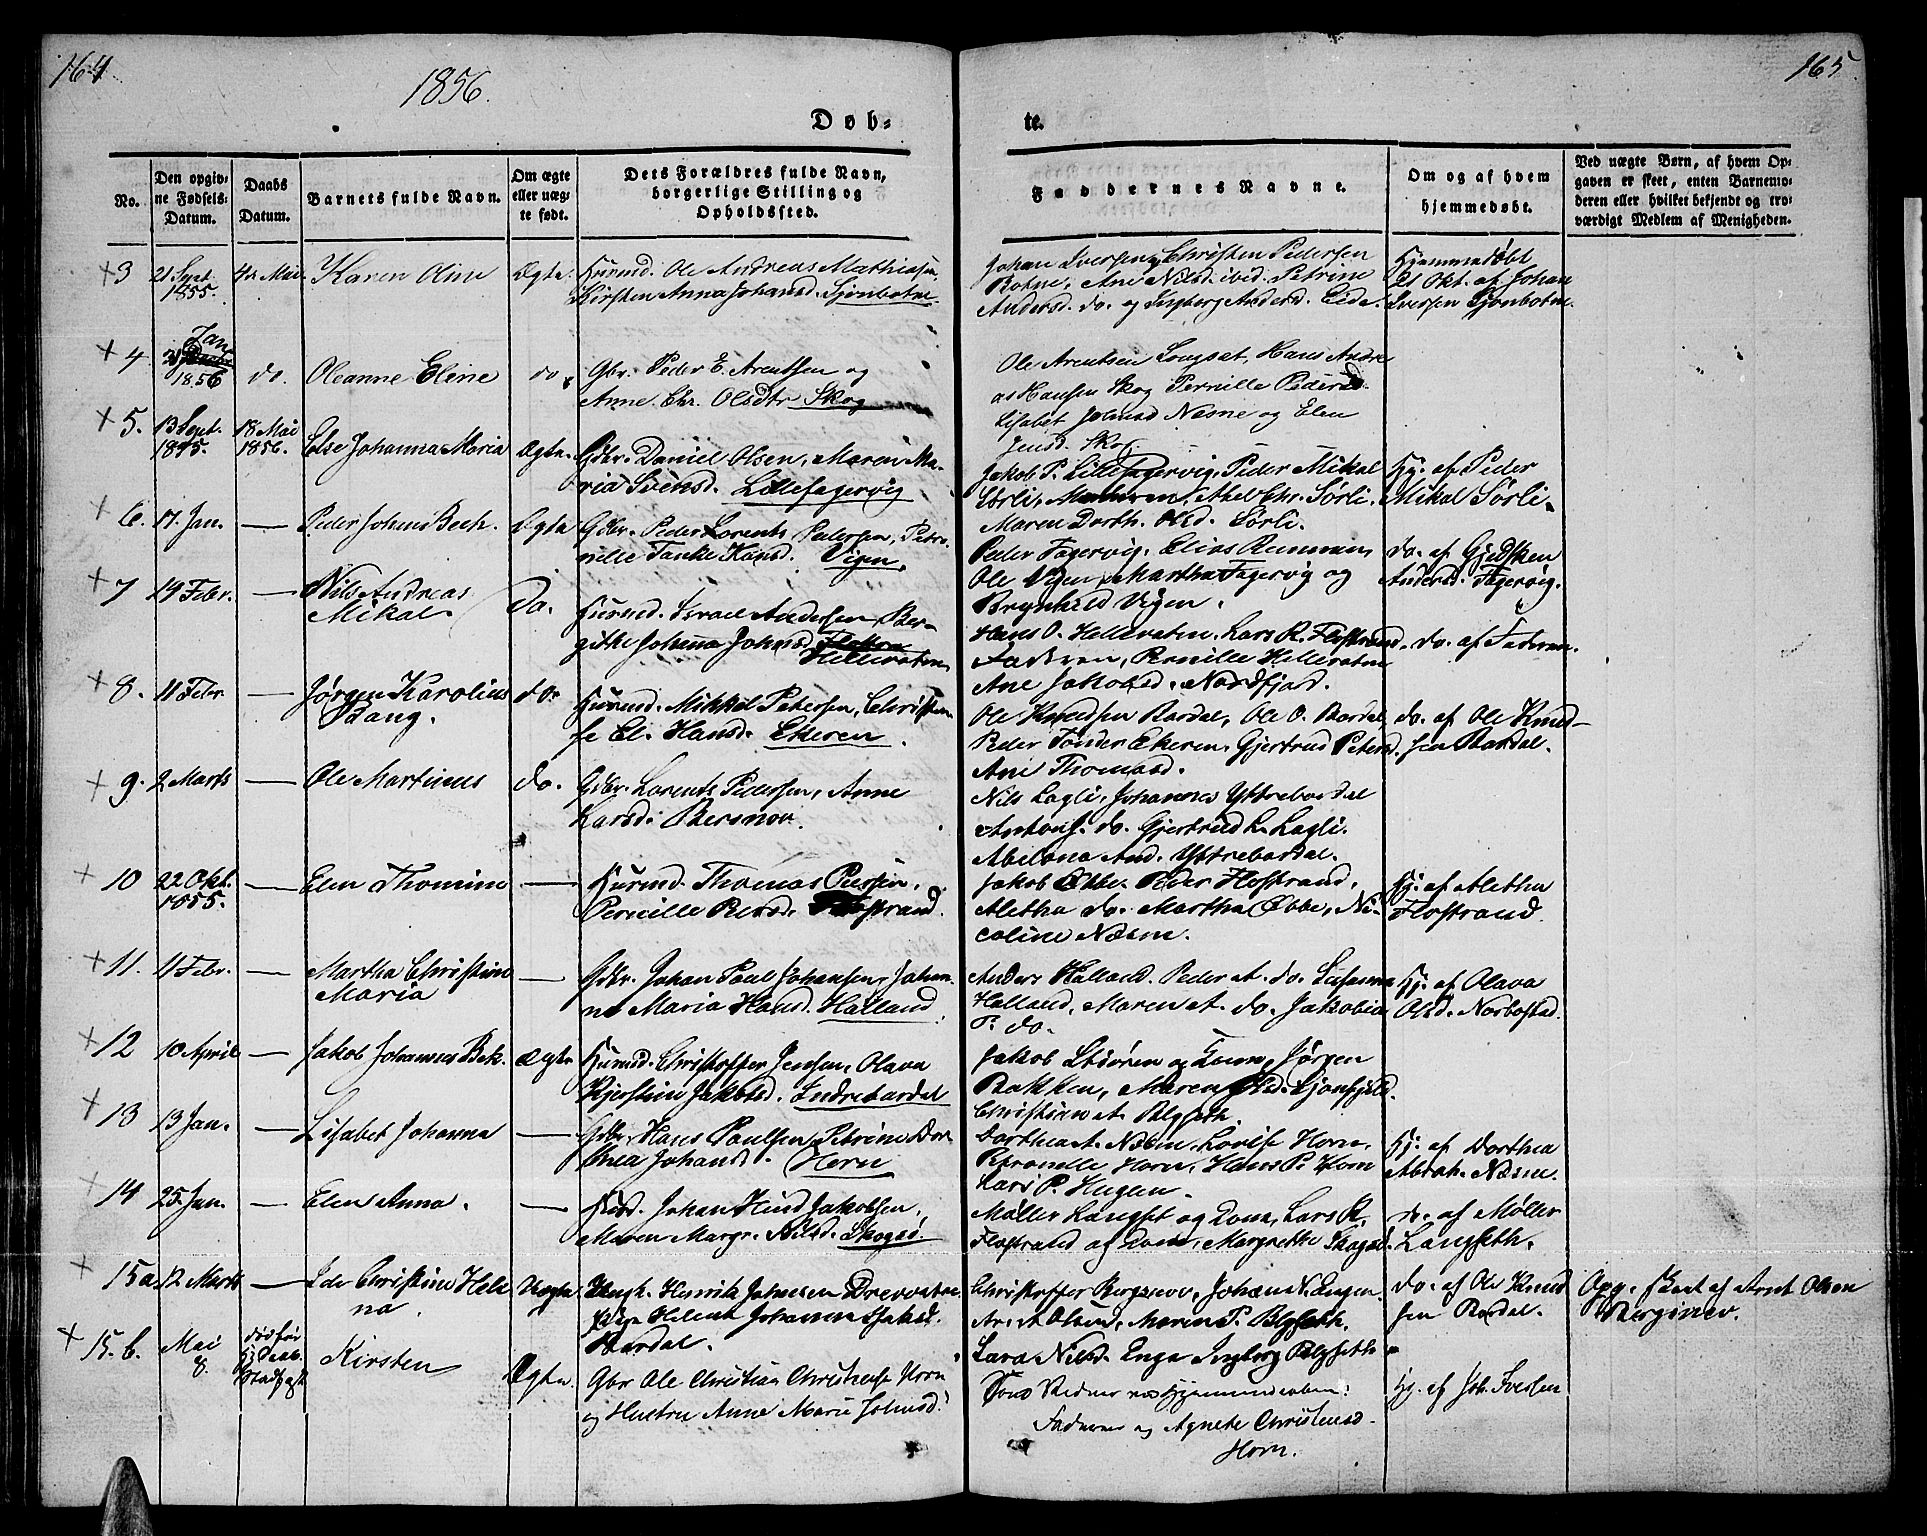 164.
1856.
165.
Døb-
te.
No.
Den opgiv-
ne Fødsels-
Datum.
Daabs
Datum.
Barnets fulde Navn.
Om ægte
eller uæg-
te født.
Dets Forældres fulde Navn,
borgerlige Stilling og
Opholdssted.
Faddernes Navne.
Om og af hvem
hjemmedøbt.
Ved uægte Børn, af hvem Op-
gaven er skeet, enten Barnemo-
deren eller hvilket bekjendt og tro-
værdigt Medlem af Menigheden.
+ 3
21 Sept.
1855.
4de Mai
Karen Oline
Ægte
Huusmd. Ole Andreas Mathiasen
Kirsten Anna Johansd. Sjonbotne
Johan Iversen, Christen Pedersen
Botne, Ane Nilsd. ibid. Petrine
Andersd. do. og Ingborg Andersd. Eide.
Hjemmedøbt
21 Okt. af Johan
Iversen Sjonbotne.
+ 4.
Jan
1856
do.
Oleanne Eline
do.
Gbr. Peder E. Arentsen og
Anne Chr. Olsdtr Skog
Ole Arentsen Langset, Hans Andre
as Hansen Skog Pernille Pedersd.
Lisabet Johnsd Nesne og Elen
Jensd. Skog
+ 5.
13 Sept.
1855.
18 Mai
1856.
Else Johanna Maria
Ægte.
Gdbr. Daniel Olsen, Maren Ma-
ria Svensd. Lillefagervig
Jakob P. Lillefagervig, Peder Mikal
Sørli, Moderen, Abel Chr. Sørli.
Maren Dorth. Olsd. Sørli.
Hj. af Peder
Mikal Sørli.
+ 6.
17. Jan.
—
Peder Johans Bech.
Ægte
Gdbr. Peder Lorents Pedersen, Petro-
nelle Tanke Hansd. Vigen.
Peder Fagervig. Elias Ranman,
Ole Vigen, Martha Fagervig og
Brynhild Vigen.
do. af Gjedsken
Andersd. Fagervig.
+ 7
19 Febr.
—
Nils Andreas
Mikal
Do.
Huusmd. Israel Andersen, Ber-
githe Johanna Johnsd. Flostran
Helleraten
Hans O. Helleraten. Lars R. Flostrand,
Faderen, Pernille Helleraten
Ane Jakobsd. Nordfjord.
do. af Faderen.
+ 8.
11 Febr
—
Jørgen Karolius
Bang.
do.
Huusmd. Mikkal Petersen, Christen-
se El. Hansd. Ekeren.
Ole Knudsen Bardal, Ole O. Bardal
Peder Tønder Ekeren. Gjertrud Petersd.
Ane Thomasd.
do. af Ole Knud-
sen Bardal.
+ 9.
2 Marts
—
Ole Martinus
do.
Gdbr. Lorents Pedersen, Anne
Larsd. Bersnov.
Nils Lagli, Johannes Yttrebardal
Anton J. do. Gjertrud L. Lagli.
Abelona And. Yttrebardal.
+ 10
22 Okt.
1855.
—
Elen Thomine
—
Huusmd. Thomas Persen,
Pernille Persd. Flostrand.
Jakob Ebbe. Peder Flostrand,
Aletha do. Martha Ebbe, Ni-
coline Næsne.
Hj. af Aletha
Flostrand.
+ 11.
11 Febr.
—
Martha Christine
Maria
—
Gdbr. Johan Paul Johansen, Johan-
ne Maria Hansd. Halland.
Anders Halland. Peder A. do. Susanna
Halland, Maren A. do. Jakobia
P. do.
Hj. af Olava
Olsd. Norbostad.
+ 12
10 April
—
Jakob Johannes Bek.
Ægte
Huusmd. Christoffer Jensen, Olava
Kjerstine Jakobsd. Indrebardal
Jakob Størren og Kone, Jørgen
Bakken, Maren Olsd. Sjonfjeld.
Christine A. Blgseth.
+ 13
13 Jan.
—
Lisabet Johanna
—
Gdbr. Hans Paulsen, Petrine Dor-
thea Johansd. Horn
Dorthea A. Næsne, Lovise Horn,
Petronelle Horn, Hans P. Horn
Lars P. Hugen.
Hj. af Dorthea
Abrah. Næsne.
+ 14
25 Jan.
—
Elen Anna.
—
Husd. Johan Hind Jakobsen,
Maren Margr. Nilsd. Skogsø
Møller Langset og Kone, Lars R.
Flostrand og Kone, Margrethe Skogsø.
do. af Møller
Langseth.
+ 15a
12 Marts
—
Ida Christine Hele
na.
Uægte
Ungk. Henrik Johansen Drevvatne
Pige Helena Johanna Jakobd.
Bardal.
Christoffer Bergsnov, Johan N. Engen.
Ar. A Olsen, Maren P. Blgseth.
Lava Nilsd. Enga Ingborg Blgseth
do. af Ole Knud
sen Bardal.
Opg. skeet af Arnt Olsen
Bergsnev.
+ 15. b.
Mai
8.
død før
Hj Daab.
Kirsten
Ægte.
Gbr Ole Christian Christensen Horn
og Hustru Anne Marie Johnsd.
Som Vidner ved Hjemmedaaben:
Fadderne og Agnete Christensd.
Horn.
Hj. af Joh. Iversen